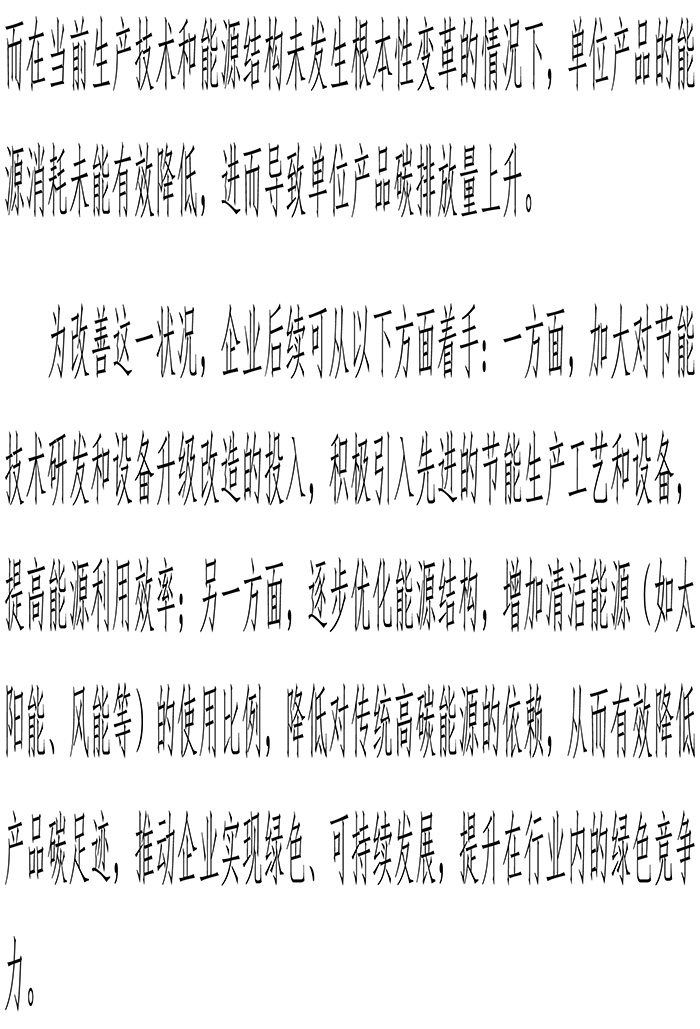 而在当前生产技术和能源结构未发生根本性变革的情况下，单位产品的能
源消耗未能有效降低，进而导致单位产品碳排放量上升。
为改善这一状况，企业后续可从以下方面着手：一方面，加大对节能
技术研发和设备升级改造的投入，积极引入先进的节能生产工艺和设备，
提高能源利用效率；另一方面，逐步优化能源结构，增加清洁能源（如太
阳能、风能等）的使用比例，降低对传统高碳能源的依赖，从而有效降低
产品碳足迹，推动企业实现绿色、可持续发展，提升在行业内的绿色竞争
力。